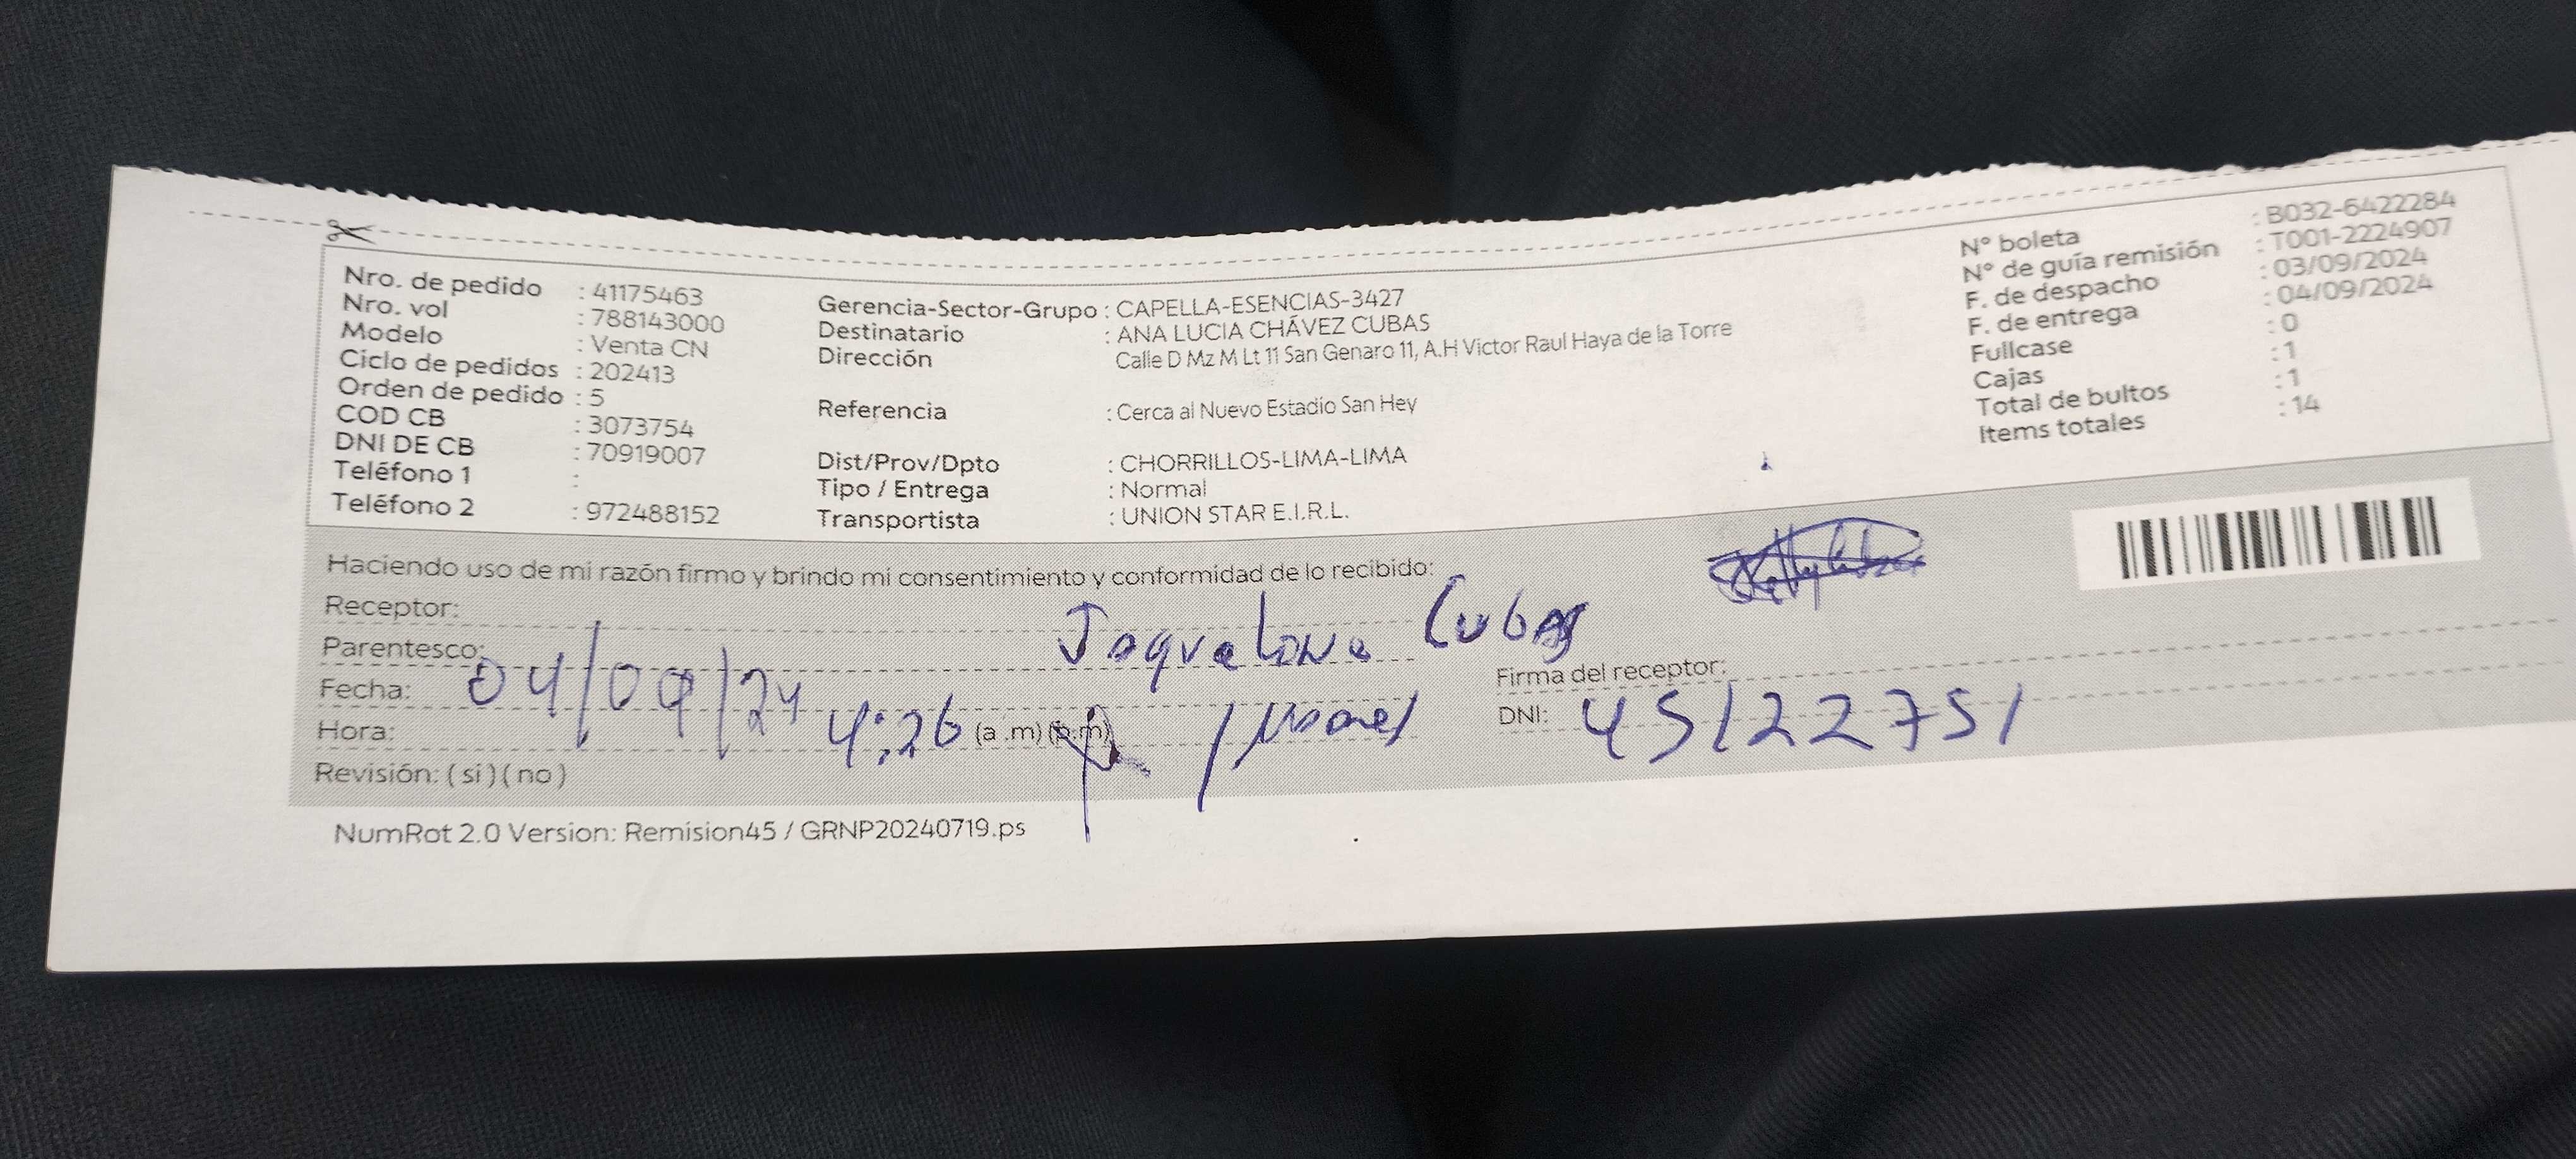 Nro. de pedido : 41175463
Nro. vol : 788143000
Modelo : Venta CN
Ciclo de pedidos : 202413
Orden de pedido : 5
COD CB : 3073754
DNI DE CB : 70919007
Teléfono 1 :
Teléfono 2 : 972488152
Gerencia-Sector-Grupo : CAPELLA-ESENCIAS-3427
Destinatario : ANA LUCIA CHÁVEZ CUBAS
Dirección Calle D Mz M Lt 11 San Genaro 11, A.H Victor Raul Haya de la Torre
Referencia : Cerca al Nuevo Estadio San Hey
Dist/Prov/Dpto : CHORRILLOS-LIMA-LIMA
Tipo / Entrega : Normal
Transportista : UNION STAR E.I.R.L.
N° boleta : B032-6422284
N° de guía remisión : T001-2224907
F. de despacho : 03/09/2024
F. de entrega : 04/09/2024
Fullcase : 0
Cajas : 1
Total de bultos : 1
Items totales : 14
Haciendo uso de mi razón firmo y brindo mi consentimiento y conformidad de lo recibido:
Receptor: Jaqueline Cubas
Parentesco:
Fecha: 04/09/24
Hora: 4:26 (a .m) (p.m)
Revisión: ( si ) ( no )
Firma del receptor:
DNI: 45122751
NumRot 2.0 Version: Remision45 / GRNP20240719.ps